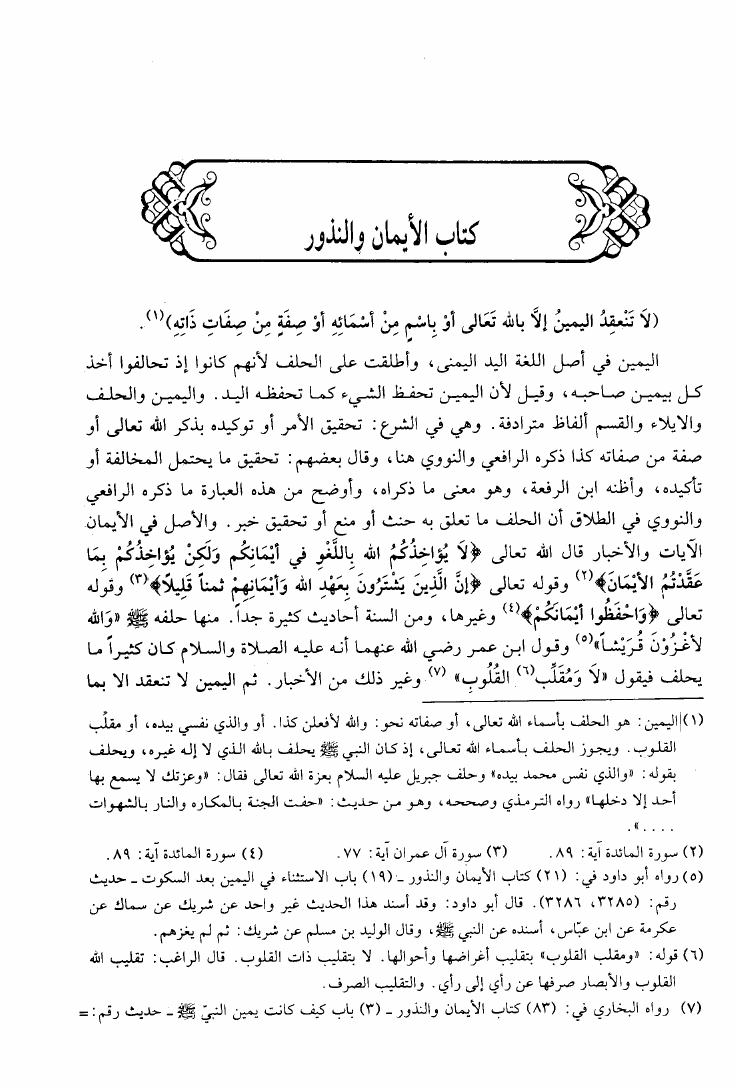 كتاب الأيمان والنذور
(لاَ تَنْعقِدُ اليمينُ إلاَّ بالله تَعَالى أوْ بِاسْمٍ مِنْ أسْمَائِهِ أوْ صِفَةٍ مِنْ صِفَاتِ ذَاتِهِ)(١).
اليمين في أصل اللغة اليد اليمنى، وأطلقت على الحلف لأنهم كانوا إذ تحالفوا أخذ
كل بيمين صاحبه، وقيل لأن اليمين تحفظ الشيء كما تحفظه اليد. واليمين والحلف
والايلاء والقسم ألفاظ مترادفة. وهي في الشرع: تحقيق الأمر أو توكيده بذكر الله تعالى أو
صفة من صفاته كذا ذكره الرافعي والنووي هنا، وقال بعضهم: تحقيق ما يحتمل المخالفة أو
تأكيده، وأظنه ابن الرفعة، وهو معنى ما ذكراه، وأوضح من هذه العبارة ما ذكره الرافعي
والنووي في الطلاق أن الحلف ما تعلق به حنث أو منع أو تحقيق خبر. والأصل في الأيمان
الآيات والأخبار قال الله تعالى ﴿لاَ يُؤَاخِذُكُمُ الله بِاللَّغْوِ في أيْمَانِكُم وَلَكِنْ يُؤَاخِذُكُمْ بِمَا
عَقَّدْتُمُ الأيْمَانَ﴾(٢) وقوله تعالى ﴿إنَّ الَّذِينَ يَشْتَرُونَ بِعَهْدِ الله وَأيْمَانِهِمْ ثمناً قَلِيلاً﴾(٣) وقوله
تعالى ﴿وَاحْفَظُوا أيْمَانَكُمْ﴾(٤) وغيرها، ومن السنة أحاديث كثيرة جداً. منها حلفه ﷺ «وَالله
لأغْزُوَنَّ قُرَيْشاً»(٥) وقول ابن عمر رضي الله عنهما أنه عليه الصلاة والسلام كان كثيراً ما
يحلف فيقول «لاَ وَمُقَلِّبِ(٦) القُلُوبِ»(٧) وغير ذلك من الأخبار. ثم اليمين لا تنعقد الا بما
(١) اليمين: هو الحلف بأسماء الله تعالى، أو صفاته نحو: والله لأفعلن كذا. أو والذي نفسي بيده، أو مقلّب
القلوب. ويجوز الحلف بأسماء الله تعالى، إذ كان النبي ﷺ يحلف بالله الذي لا إله غيره، ويحلف
بقوله: «والذي نفس محمد بيده» وحلف جبريل عليه السلام بعزة الله تعالى فقال: «وعزتك لا يسمع بها
أحد إلا دخلها» رواه الترمذي وصححه، وهو من حديث: «حفت الجنة بالمكاره والنار بالشهوات
....».
(٢) سورة المائدة آية: ٨٩. (٣) سورة آل عمران آية: ٧٧. (٤) سورة المائدة آية: ٨٩.
(٥) رواه أبو داود في: (٢١) كتاب الأيمان والنذور ـ (١٩) باب الاستثناء في اليمين بعد السكوت ـ حديث
رقم: (٣٢٨٥، ٣٢٨٦). قال أبو داود: وقد أسند هذا الحديث غير واحد عن شريك عن سماك عن
عكرمة عن ابن عبّاس، أسنده عن النبي ﷺ، وقال الوليد بن مسلم عن شريك: ثم لم يغزهم.
(٦) قوله: «ومقلب القلوب» بتقليب أغراضها وأحوالها. لا بتقليب ذات القلوب. قال الراغب: تقليب الله
القلوب والأبصار صرفها عن رأي إلى رأي. والتقليب الصرف.
(٧) رواه البخاري في: (٨٣) كتاب الأيمان والنذور ـ (٣) باب كيف كانت يمين النبيّ ﷺ ـ حديث رقم: =